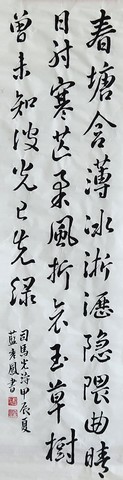 春塘含薄冰淅瀝隐隈曲晴
日射寒芒柔風折哀玉草樹
曾未知波光已先緑
司馬光詩甲辰夏
藍 書